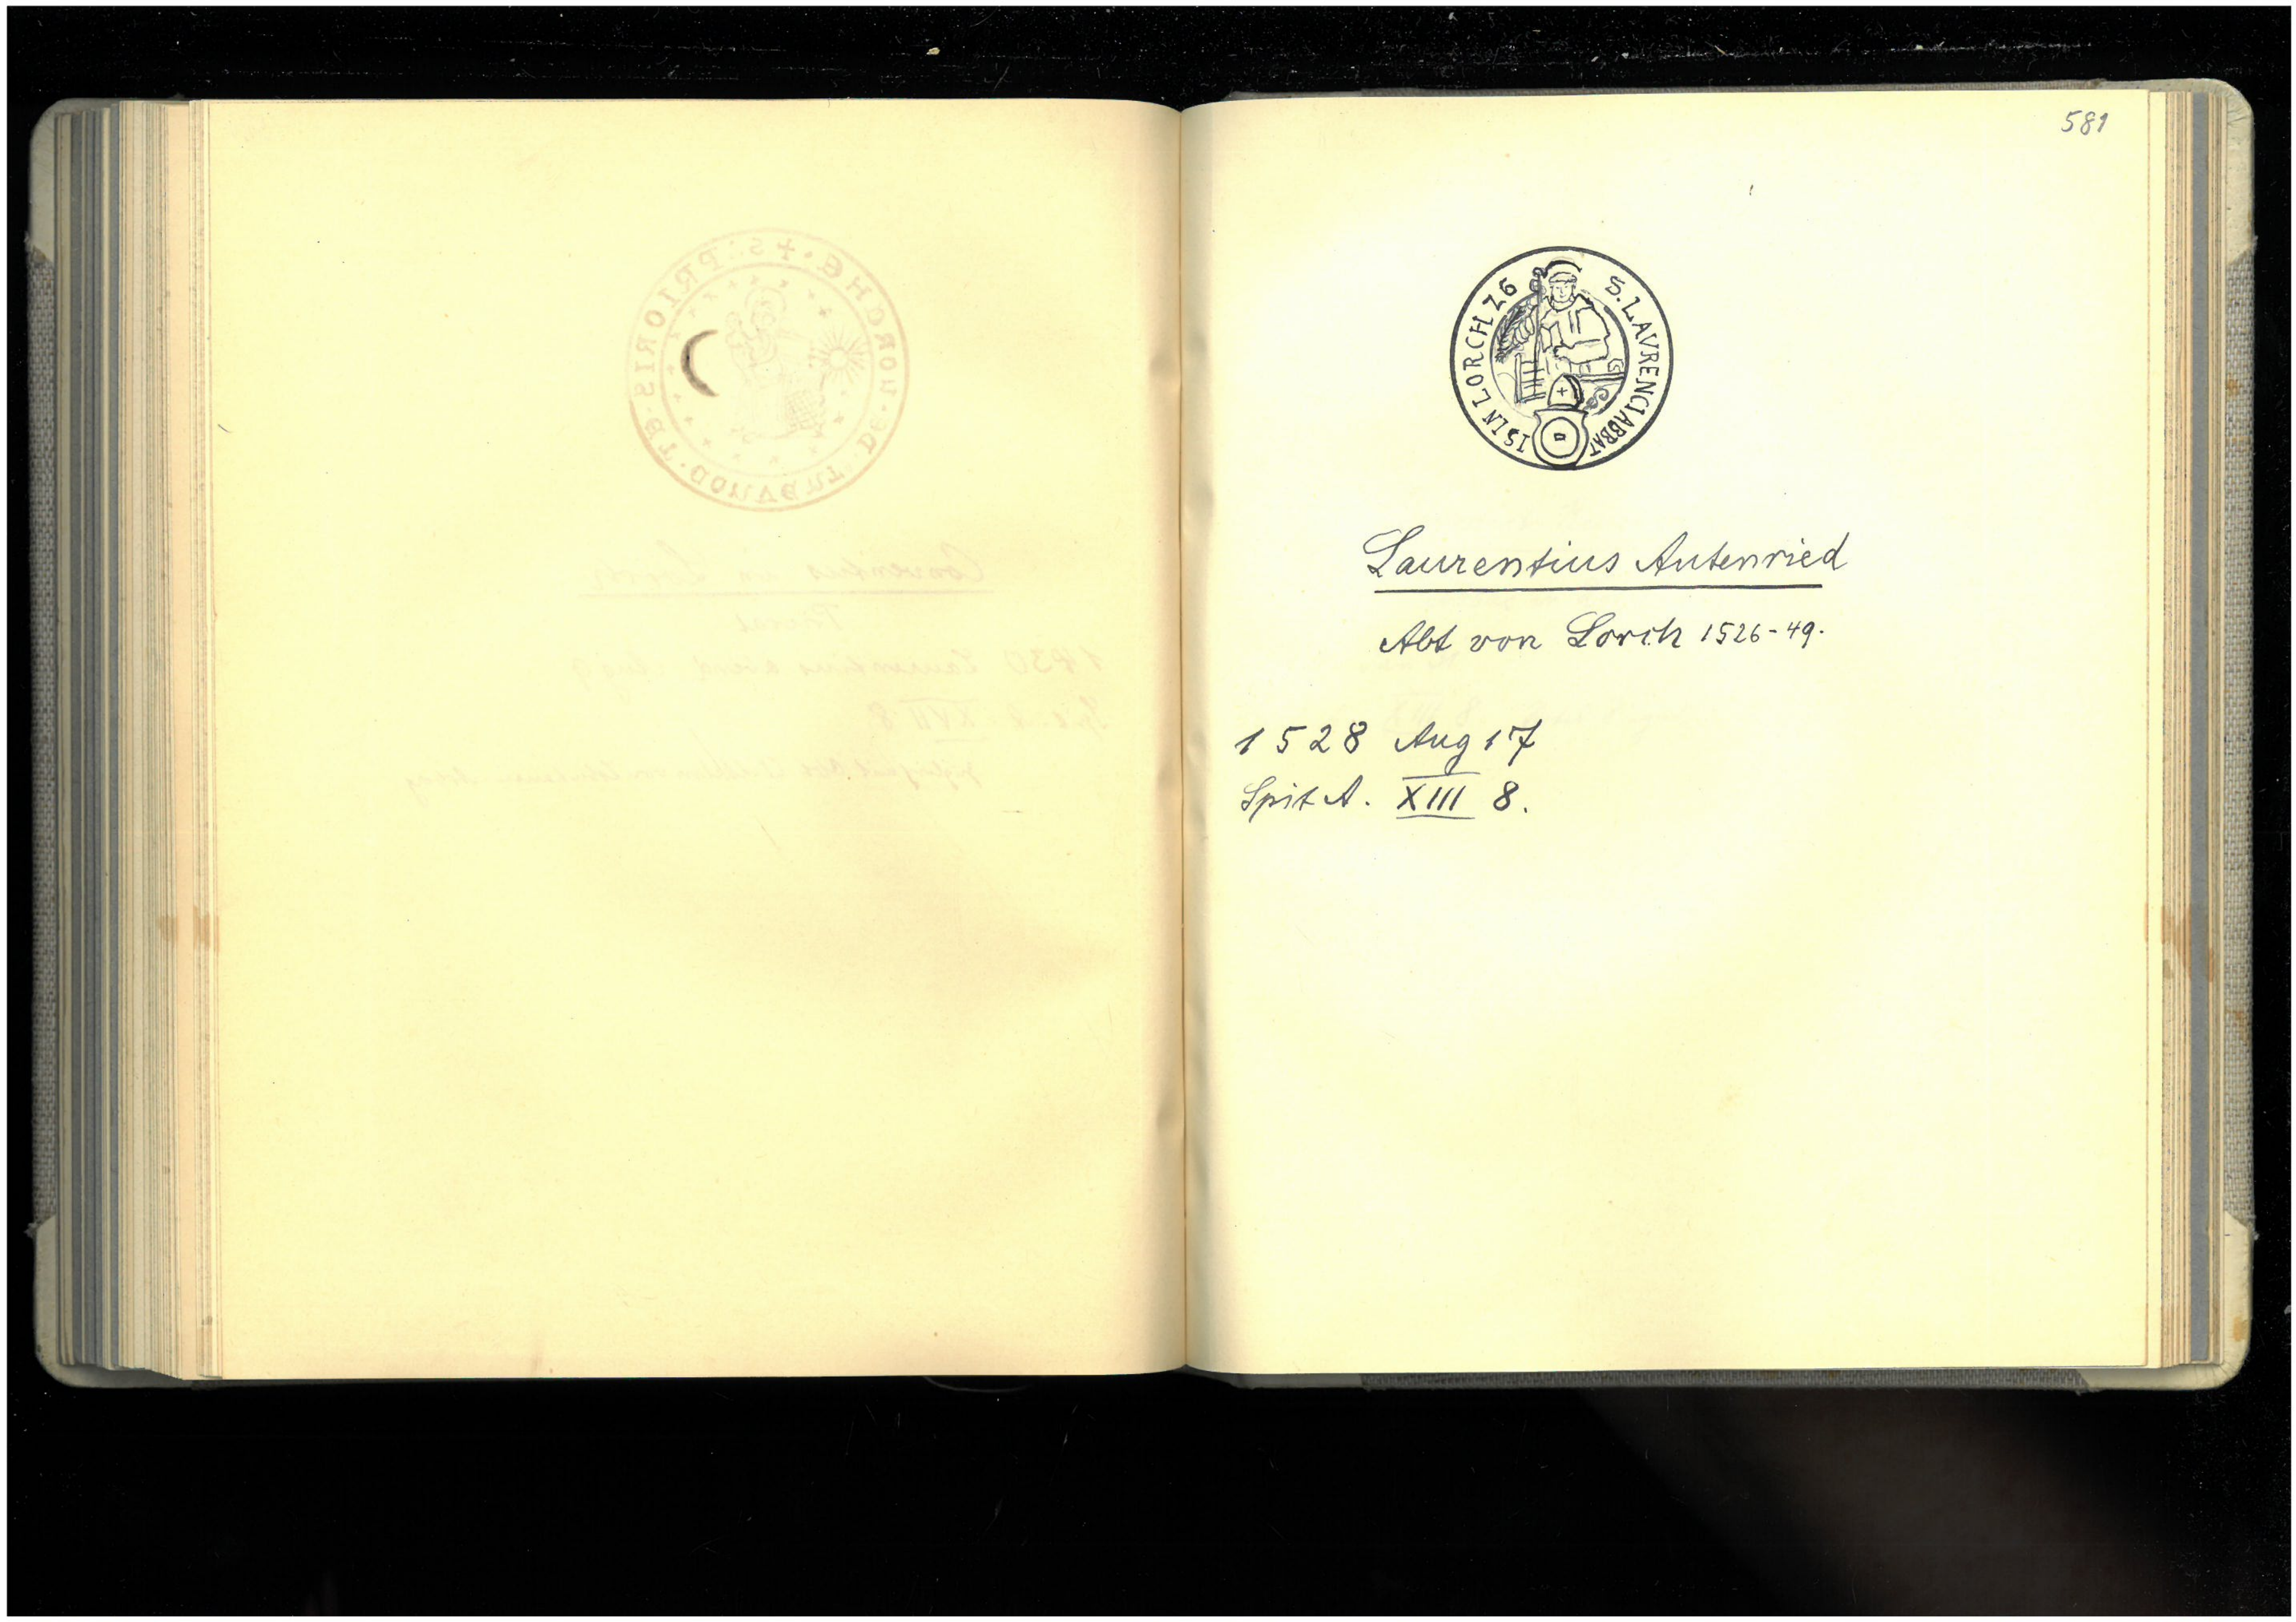 581
S. LAVRENCI ABBATIS IN LORCH Z6
Laurentius Autenried
Abt von Lorch 1526-49.
1528 Aug 17
Spit A. XIII 8.